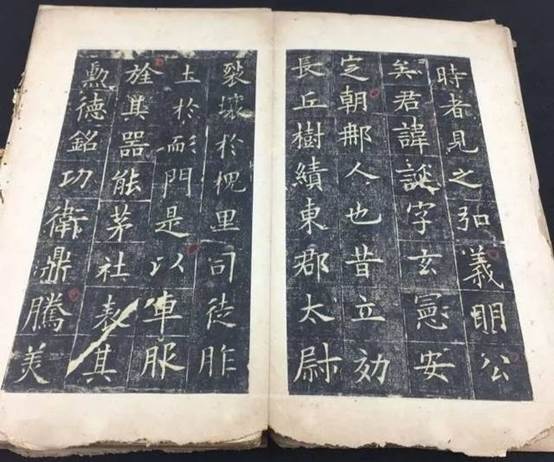 時者見之弘義明公
矣君諱誕字玄憲安
定朝那人也昔立効
長丘樹績東郡太尉
裂壤於槐里司徒胙
土於耏門是以車服
旌其器能茅社表其
勳德銘功衛鼎騰美